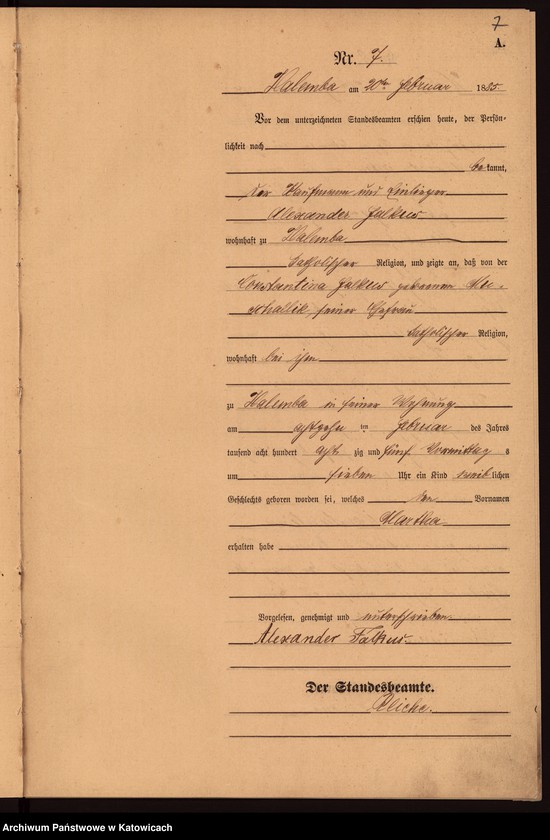 7
A.
Nr. 7.
Halemba am 20ten Februar 1885
Vor dem unterzeichneten Standesbeamten erschien heute, der Persön-
lichkeit nach
bekannt,
der Kaufmann und Einlieger
Alexander Falkus
wohnhaft zu Halemba
katholischer Religion, und zeigte an, daß von der
Constantina Falkus geborenen
seiner Ehefrau
katholischer Religion,
wohnhaft bei ihm
zu Halemba in seiner Wohnung
am achtzehn ten Februar des Jahres
tausend acht hundert acht zig und fünf Vormittag s
um sieben Uhr ein Kind weiblichen
Geschlechts geboren worden sei, welches den Vornamen
Martha
erhalten habe
Vorgelesen, genehmigt und unterschrieben
Alexander Falkus
Der Standesbeamte.
Archiwum Państwowe w Katowicach